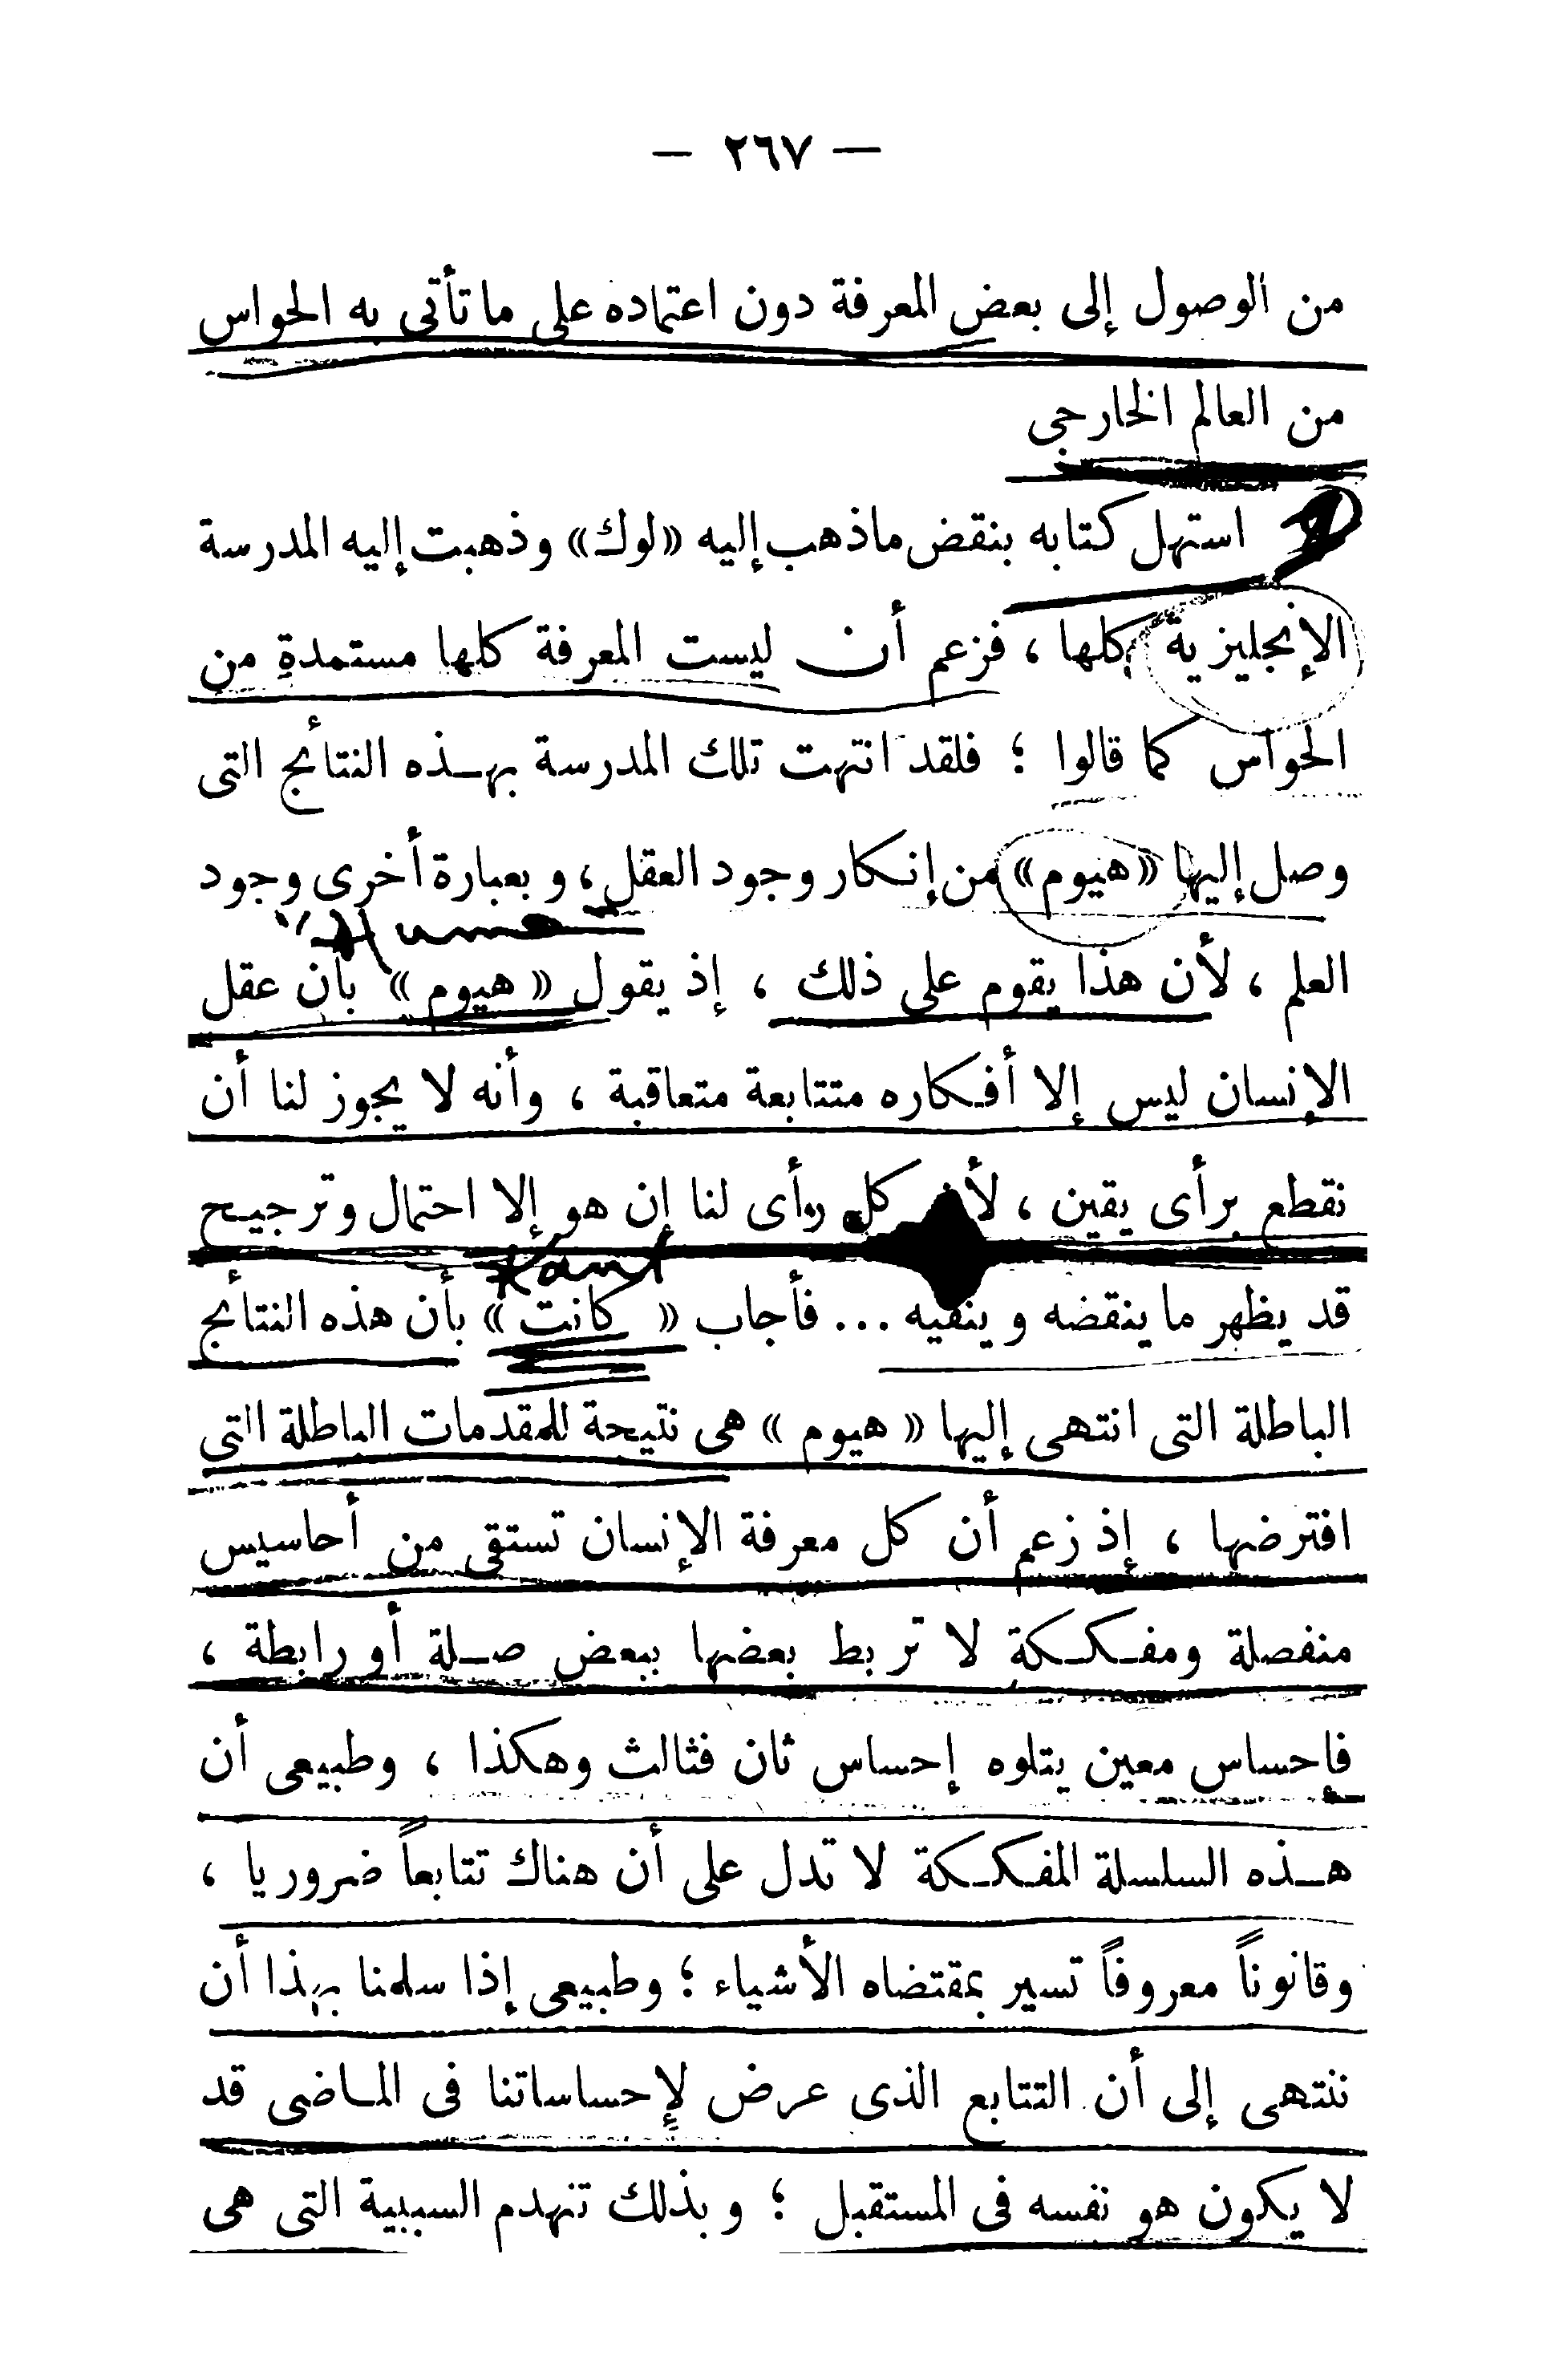 — ٢٦٧ —
من الوصول إلى بعض المعرفة دون اعتماده على ما تأتى به الحواس
من العالم الخارجى
استهل كتابه بنقض ماذهب إليه «لوك» وذهبت إليه المدرسة
الإنجليزية كلها ، فزعم أن ليست المعرفة كلها مستمدة من
الحواس كما قالوا ؛ فلقد انتهت تلك المدرسة بهذه النتائج التى
وصل إليها «هيوم» من إنكار وجود العقل ، وبعبارة أخرى وجود
Hume
العلم ، لأن هذا يقوم على ذلك ، إذ يقول « هيوم » بأن عقل
الإنسان ليس إلا أفكاره متتابعة متعاقبة ، وأنه لا يجوز لنا أن
نقطع برأى يقين ، لأن كل رأى لنا إن هو إلا احتمال وترجيح
Kant
قد يظهر ما ينقضه وينفيه ... فأجاب « كانت » بأن هذه النتائج
الباطلة التى انتهى إليها « هيوم » هى نتيجة للمقدمات الباطلة التى
افترضها ، إذ زعم أن كل معرفة الإنسان تستقى من أحاسيس
منفصلة ومفككة لا تربط بعضها ببعض صلة أو رابطة ،
فإحساس معين يتلوه إحساس ثان فثالث وهكذا ، وطبيعى أن
هذه السلسلة المفككة لا تدل على أن هناك تتابعاً ضروريا ،
وقانوناً معروفاً تسير بمقتضاه الأشياء ؛ وطبيعى إذا سلمنا بهذا أن
ننتهى إلى أن التتابع الذى عرض لإحساساتنا فى الماضى قد
لا يكون هو نفسه فى المستقبل ؛ وبذلك تنهدم السببية التى هى